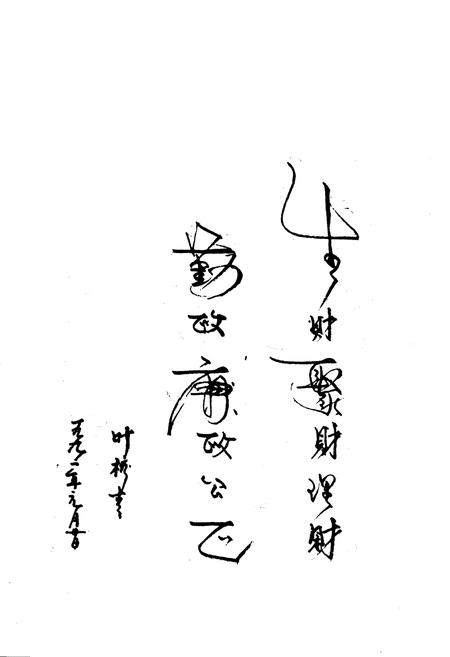 生财聚财理财
勤政廉政公正
叶
一九九一年元月廿日